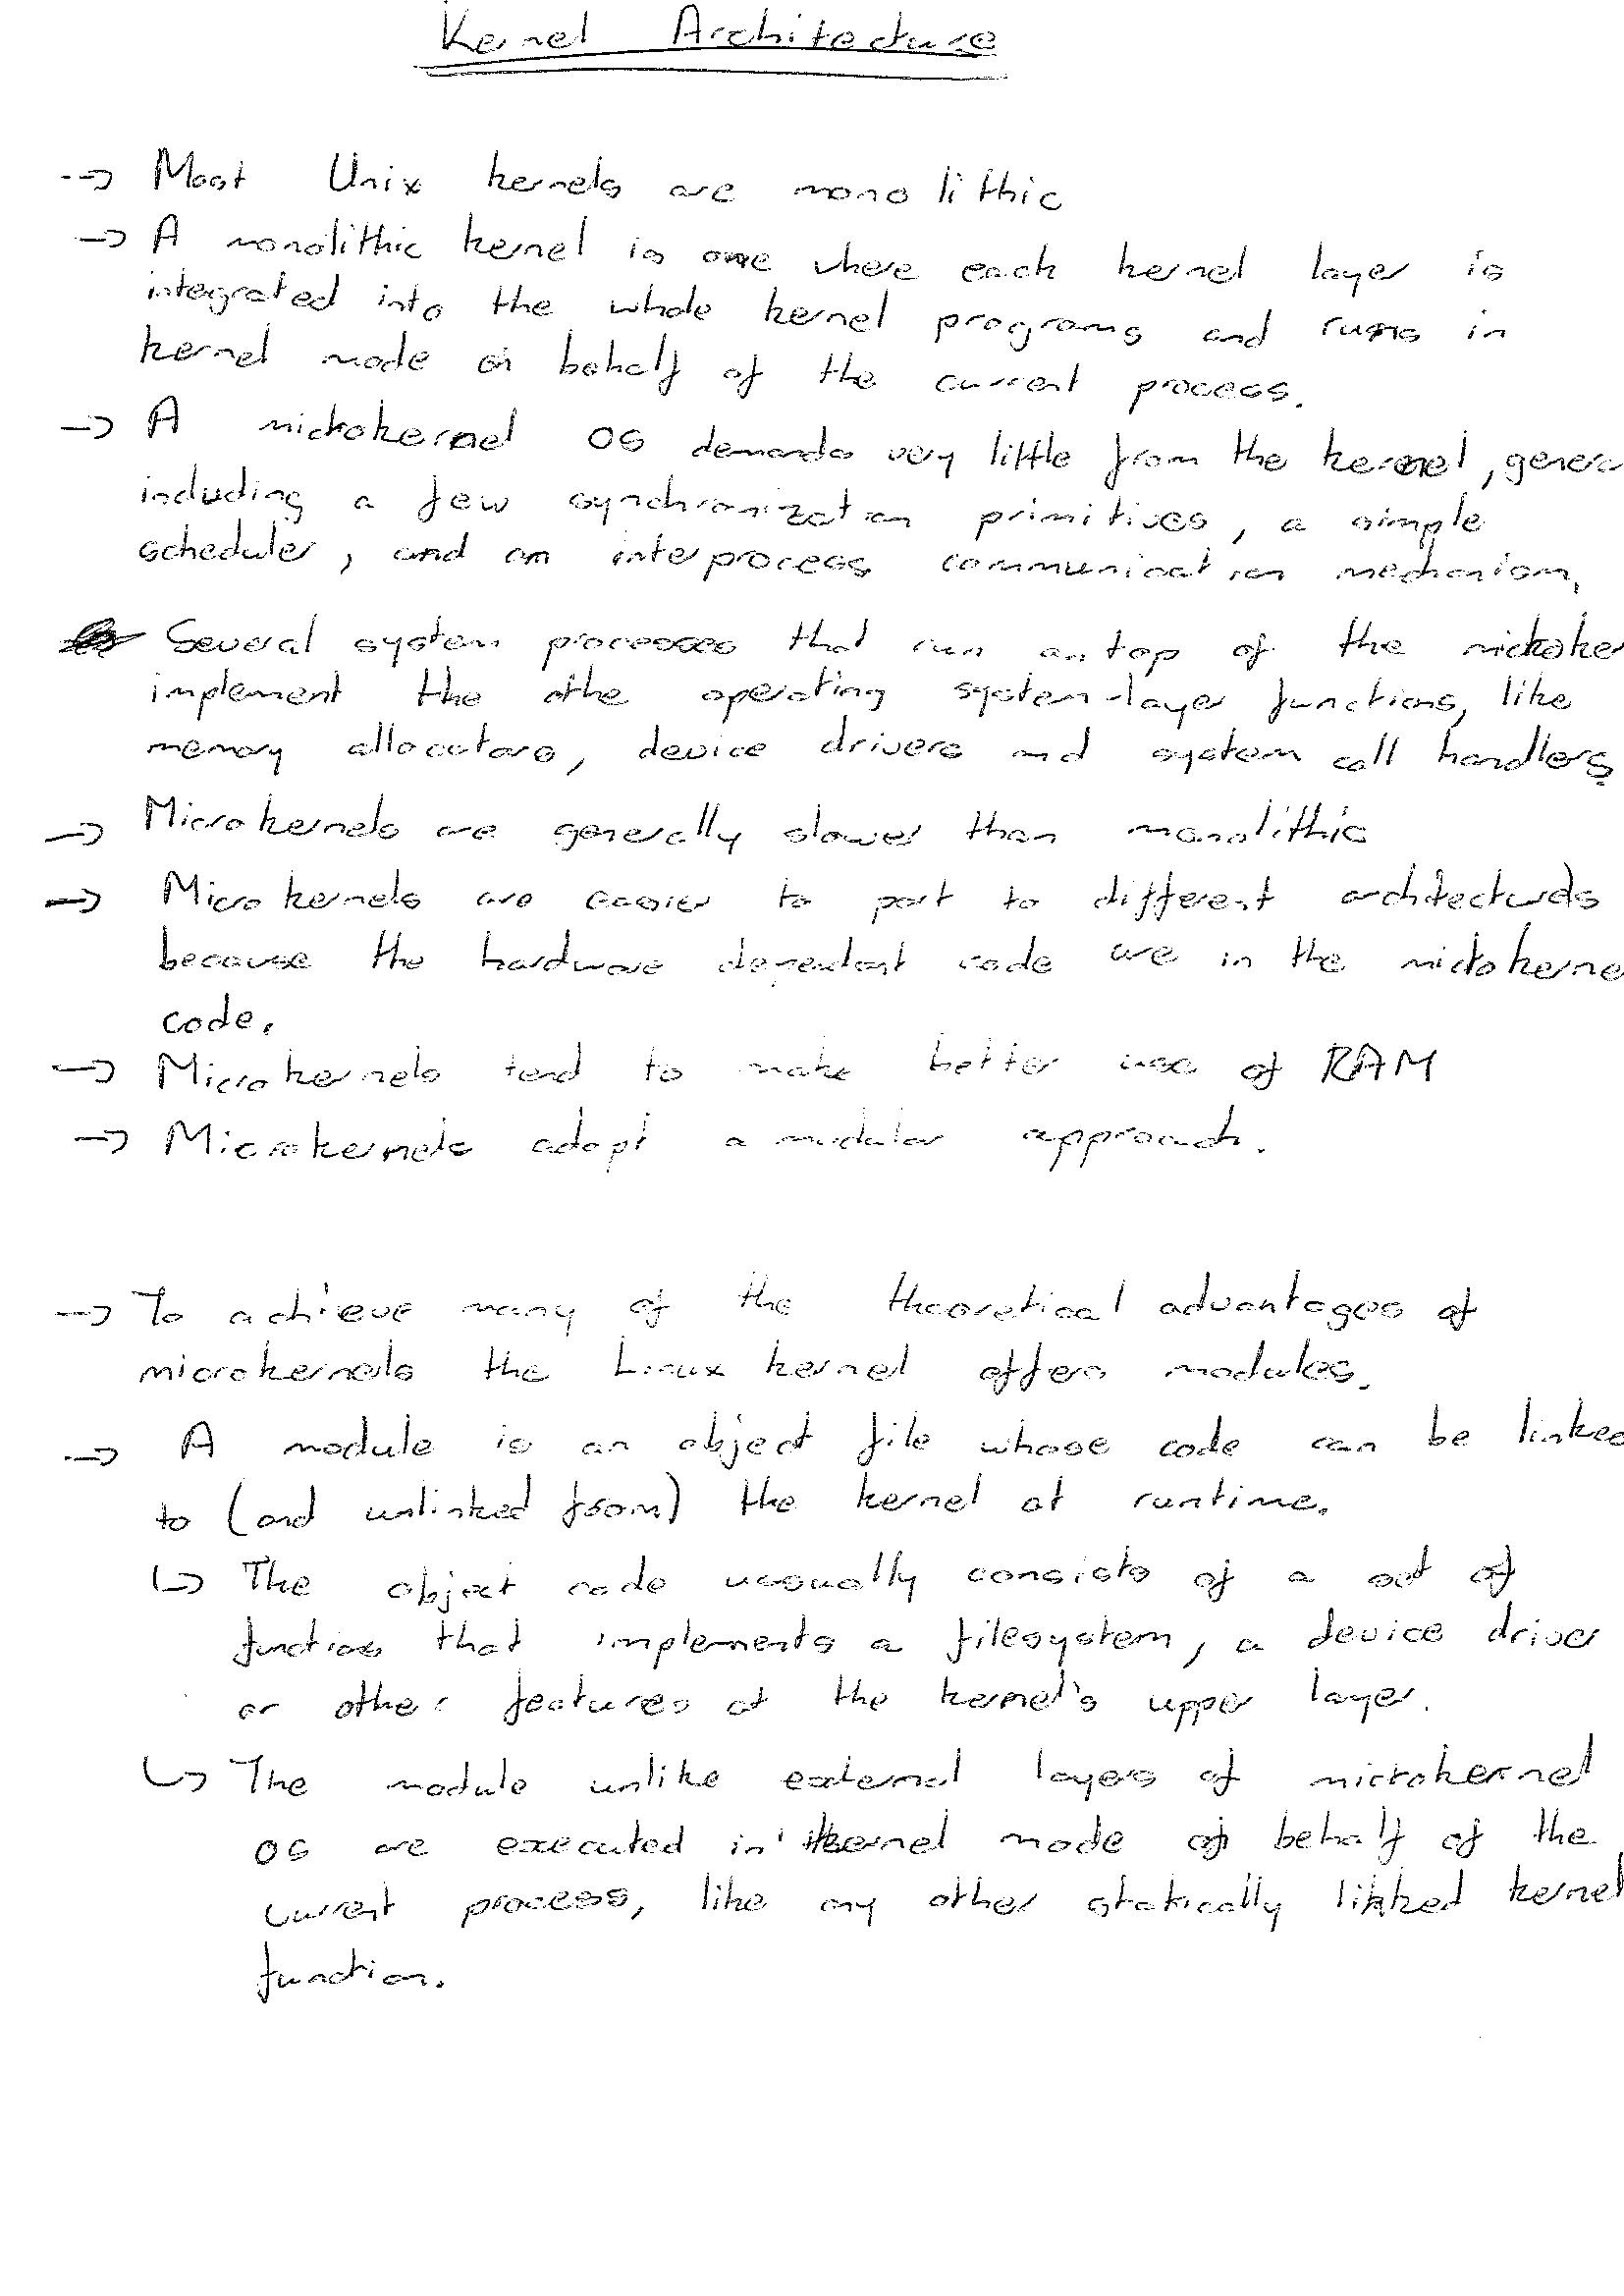 Kernel Architecture
--> Most Unix kernels are monolithic
-> A monolithic kernel is one where each kernel layer is
integrated into the whole kernel programs and runs in
kernel mode on behalf of the current process.
-> A mickokernel OS demands very little from the kernel, genera
including a few synchronization primitives, a simple
scheduler, and an interprocess communication mechanism,
Several system processes that run on top of the mickoker
implement the othe operating system-layer functions, like
memory allocators, device drivers and system call handlers
-> Microkernels are generally slower than monolithic
-> Microkernels are easier to port to different architectures
because the hardware dependent code are in the mickokerne
code.
-> Microkernels tend to make better use of RAM
-> Microkernels adopt a modular approach.
-> To achieve many of the theoretical advantages of
microkernels the Linux kernel offers modules.
-> A module is an object file whose code can be linked
to (and unlinked from) the kernel at runtime.
↳ The object code ususually consists of a set of
function that implements a filesystem, a device driver
or other features at the kernel's upper layer.
↳ The module unlike external layers of mickokernel
OS are executed in kernel mode on behalf of the
current process, like any other statically linked kernel
function.